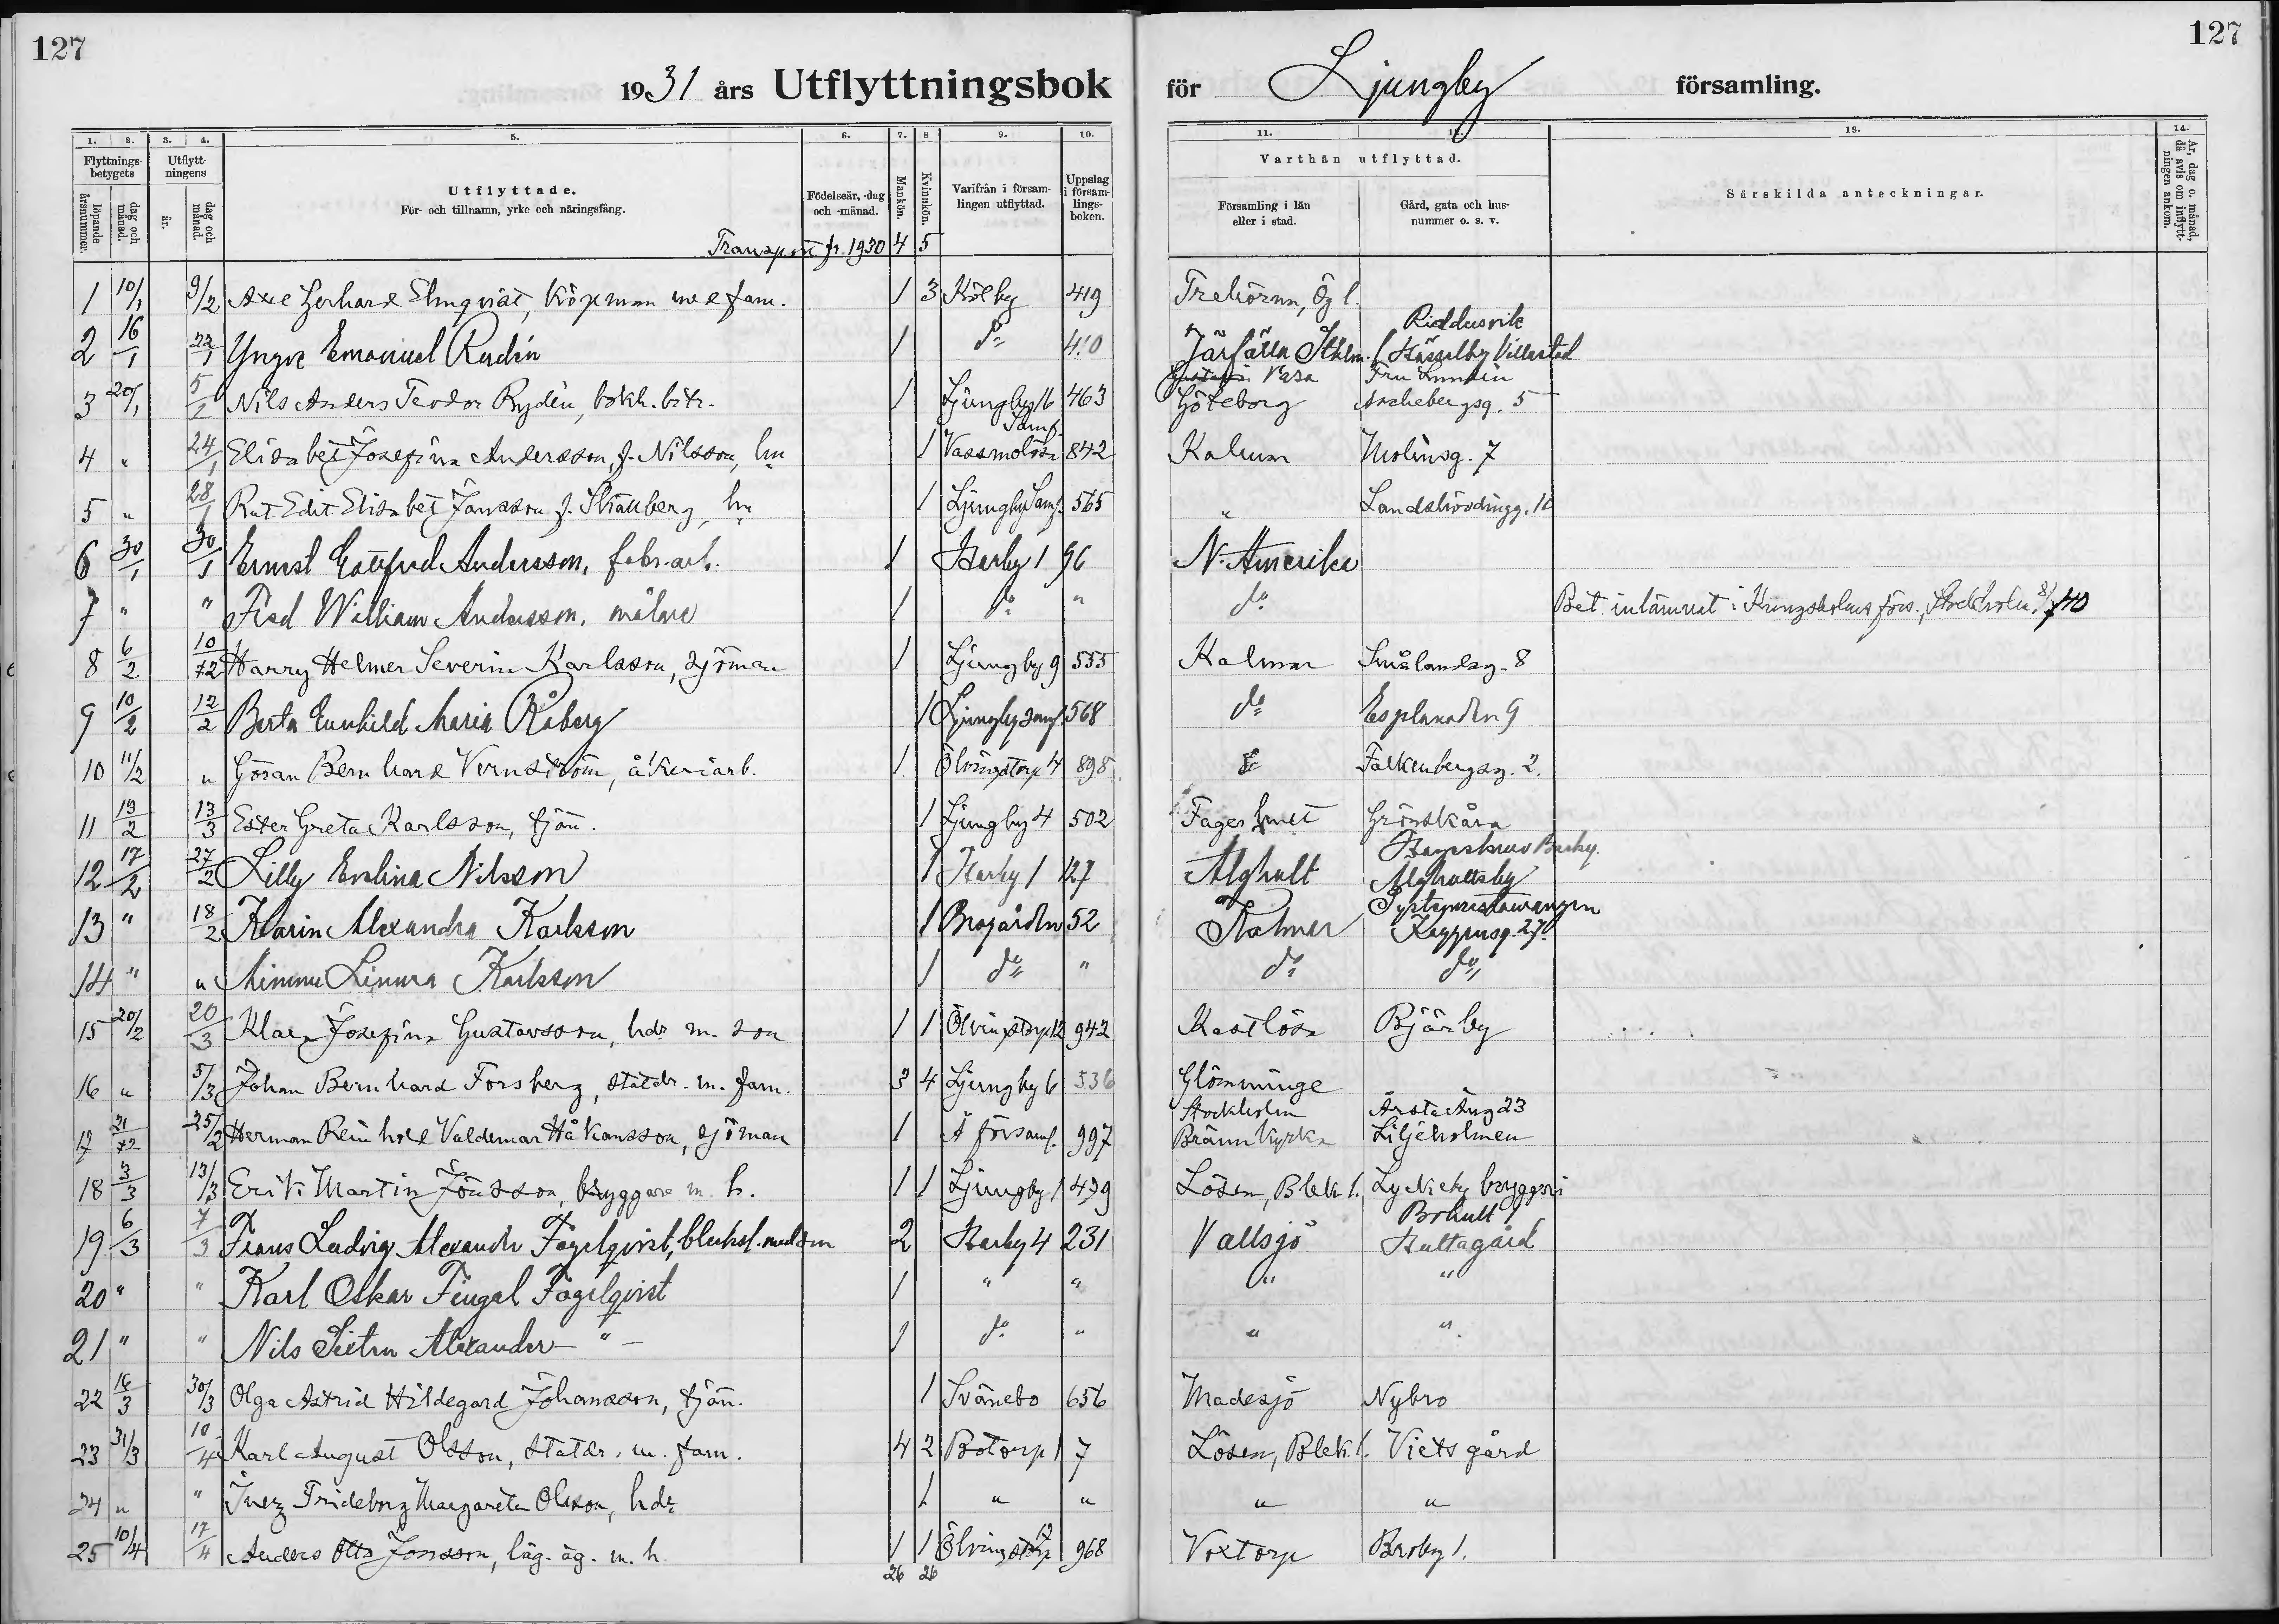 127
127
1931 års Utflyttningsbok för Ljungby församling.
1. 2. 3. 4. 5. 6. 7. 8 9. 10. 11. 12. 13. 14.
Flyttnings-betygets
Utflytt-ningens
löpande årsnummer.
dag och månad.
år.
dag och månad.
Utflyttade.
För- och tillnamn, yrke och näringsfång.
Födelseår, -dag och -månad.
Mankön.
Kvinnkön.
Varifrån i försam-lingen utflyttad.
Uppslag i försam-lings-boken.
Varthän utflyttad.
Församling i län eller i stad.
Gård, gata och hus-nummer o. s. v.
Särskilda anteckningar.
År, dag o. månad, då avis om inflytt-ningen ankom.
Transport fr. 1930 4 5
1 10/1 9/2 Axel Gerhard Elmqvist, köpman med fam. 1 3 Kölby 419 Trehörna, Ög l.
Riddersvik
2 16/1 22/1 Yngve Emanuel Rudin 1 do 410 Järfälla Sthlm. l Hässelby Villastad
Gustaf Vasa Fru Lundin
3 20/1 5/1 Nils Anders Teodor Rydén, bokh. bitr. 1 Ljungby 16 463 Göteborg Aschebergsg. 5
4 " 24/1 Elisabet Josefina Andersson, f. Nilsson, hu 1 Vassmolösa Samf. 842 Kalmar Molinsg. 7
5 " 28/1 Rut Edit Elisabet Jansson f. Stålberg, hu 1 Ljungby Samf. 565 " Landshövdingg. 10
6 30/1 30/1 Ernst Gottfrid Andersson, fabr.arb. 1 Harby 1 96 N. Amerika
7 " " Fred William Andersson, målare 1 do " do Bet. inlämnat i Kungsholms förs., Stockholm, 8/7 40
8 6/2 10/2 Harry Helmer Severin Karlsson, sjöman 1 Ljungby 9 555 Kalmar Smålandsg. 8
9 10/2 12/2 Berta Gunhild Maria Råberg 1 Ljungby samf. 568 do Esplanaden 9
10 11/2 " Göran Bernhard Vernström, åkeriarb. 1 Ölvingstorp 4 898 " Falkenbergsg. 2.
11 13/2 13/3 Ester Greta Karlsson, tjän. 1 Ljungby 4 502 Fagerhult Grönskåra
12 17/2 27/2 Lilly Evelina Nilsson 1 Harby 1 127 Älghult Älghultsby
13 " 18/2 Karin Alexandra Karlsson 1 Brogården 52 Kalmar Systemrestaurangen
Kaggensg. 27.
14 " " Mimmi Linnea Karlsson 1 do " do do
15 20/2 20/3 Klara Josefina Gustavsson, hdr m. son 1 1 Ölvingstorp 12 942 Kastlösa Bjärby
16 " 5/3 Johan Bernhard Forsberg, statdr. m. fam. 3 4 Ljungby 6 536 Glömminge
Stockholm Årsta Äng 23
17 21/2 25/2 Herman Reinhold Valdemar Håkansson, sjöman 1 Å församl. 997 Brännkyrka Liljeholmen
18 3/3 13/3 Erik Martin Jönsson, bryggare m. h. 1 1 Ljungby 1 479 Lösen, Blek. l. Lyckeby bryggeri
19 6/3 7/3 Frans Ludvig Alexander Fagelqvist, blecksl. med son 2 Harby 4 231 Vallsjö Bohult 1
Hultagård
20 " " Karl Oskar Fingal Fagelqvist 1 " " " "
21 " " Nils Sixten Alexander - " - 1 do " " "
22 16/3 30/3 Olga Astrid Hildegard Johansson, tjän. 1 Svänebo 656 Madesjö Nybro
23 31/3 10/4 Karl August Olsson, statdr. m. fam. 4 2 Botorp 1 7 Lösen, Blek. l. Viets gård
24 " " Inez Frideborg Margareta Olsson, hdr 1 " " " "
25 10/4 17/4 Anders Otto Jonsson, läg. äg. m. h. 1 1 Ölvingstorp 12 968 Voxtorp Broby 1.
26 26